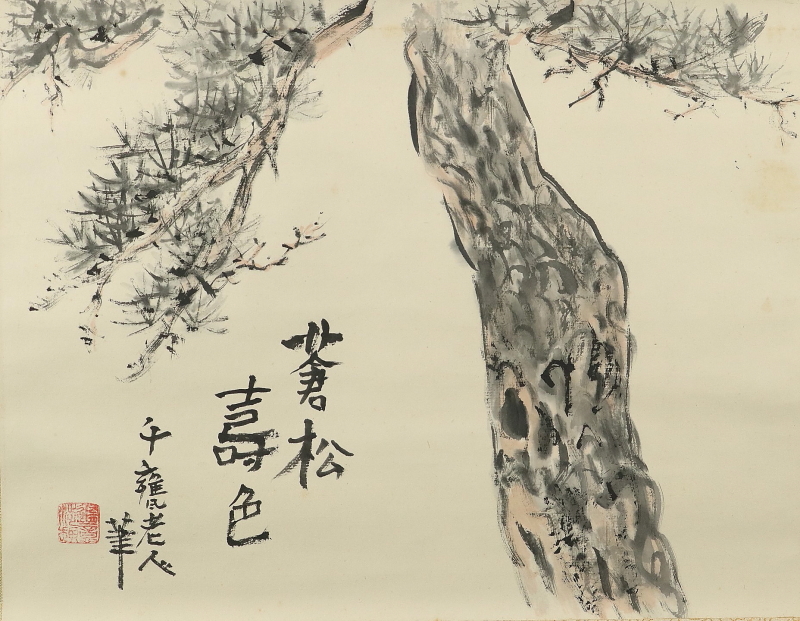 蒼松
壽色
千甕老人
筆